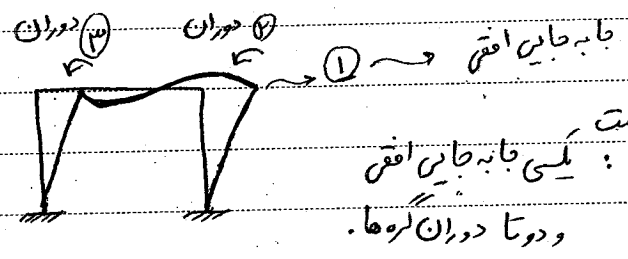 دوران ③ دوران ②
① جابه جایی افقی
: یکی جابه جایی افقی
و دوتا دوران گره ها.